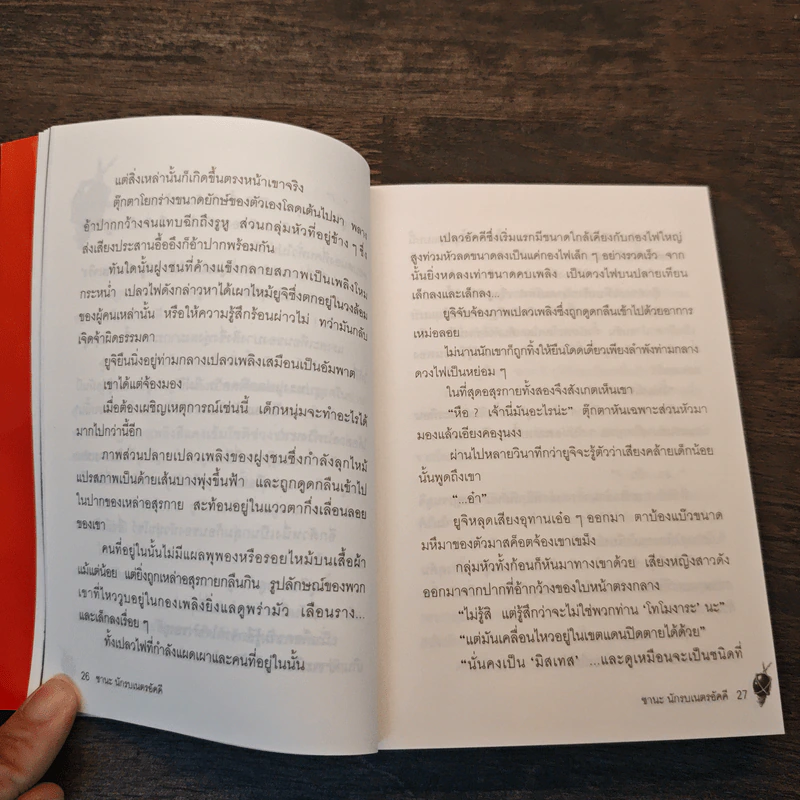 แต่สิ่งเหล่านั้นก็เกิดขึ้นตรงหน้าเขาจริง
ตุ๊กตาโยกร่างขนาดยักษ์ของตัวเองโลดเต้นไปมา พลาง
อ้าปากกว้างจนแทบฉีกถึงรูหู ส่วนกลุ่มหัวที่อยู่ข้าง ๆ ซึ่ง
ส่งเสียงประสานอื้ออึงก็อ้าปากพร้อมกัน
ทันใดนั้นฝูงชนที่ค้างแข็งกลายสภาพเป็นเพลิงโหม
กระหน่ำ เปลวไฟดังกล่าวหาได้เผาไหม้ยูจิซึ่งตกอยู่ในวงล้อม
ของผู้คนเหล่านั้น หรือให้ความรู้สึกร้อนผ่าวไม่ ทว่ามันกลับ
เจิดจ้าผิดธรรมดา
ยูจิยืนนิ่งอยู่ท่ามกลางเปลวเพลิงเสมือนเป็นอัมพาต
เขาได้แต่จ้องมอง
เมื่อต้องเผชิญเหตุการณ์เช่นนี้ เด็กหนุ่มจะทำอะไรได้
มากไปกว่านี้อีก
ภาพส่วนปลายเปลวเพลิงของฝูงชนซึ่งกำลังลุกไหม้
แปรสภาพเป็นด้ายเส้นบางพุ่งขึ้นฟ้า และถูกดูดกลืนเข้าไป
ในปากของเหล่าอสุรกาย สะท้อนอยู่ในแววตากึ่งเลื่อนลอย
ของเขา
คนที่อยู่ในนั้นไม่มีแผลพุพองหรือรอยไหม้บนเสื้อผ้า
แม้แต่น้อย แต่ยิ่งถูกเหล่าอสุรกายกลืนกิน รูปลักษณ์ของพวก
เขาที่ไหววูบอยู่ในกองเพลิงยิ่งแลดูพร่ามัว เลือนราง...
และเล็กลงเรื่อย ๆ
ทั้งเปลวไฟที่กำลังแผดเผาและคนที่อยู่ในนั้น
26 ชานะ นักรบเนตรอัคคี
เปลวอัคคีซึ่งเริ่มแรกมีขนาดใกล้เคียงกับกองไฟใหญ่
สูงท่วมหัวลดขนาดลงเป็นแค่กองไฟเล็ก ๆ อย่างรวดเร็ว จาก
นั้นยิ่งหดลงเท่าขนาดคบเพลิง เป็นดวงไฟบนปลายเทียน
เล็กลงและเล็กลง...
ยูจิจับจ้องภาพเปลวเพลิงซึ่งถูกดูดกลืนเข้าไปด้วยอาการ
เหม่อลอย
ไม่นานนักเขาก็ถูกทิ้งให้ยืนโดดเดี่ยวเพียงลำพังท่ามกลาง
ดวงไฟเป็นหย่อม ๆ
ในที่สุดอสุรกายทั้งสองจึงสังเกตเห็นเขา
“หือ ? เจ้านี่มันอะไรน่ะ” ตุ๊กตาหันเฉพาะส่วนหัวมา
มองแล้วเอียงคองุนงง
ผ่านไปหลายวินาทีกว่ายูจิจะรู้ตัวว่าเสียงคล้ายเด็กน้อย
นั้นพูดถึงเขา
“...อ๋ำ”
ยูจิหลุดเสียงอุทานเอ๋อ ๆ ออกมา ตาบ้องแบ๊วขนาด
มหึมาของตัวมาสค็อตจ้องเขาเขม็ง
กลุ่มหัวทั้งก้อนก็หันมาทางเขาด้วย เสียงหญิงสาวดัง
ออกมาจากปากที่อ้ากว้างของใบหน้าตรงกลาง
“ไม่รู้สิ แต่รู้สึกว่าจะไม่ใช่พวกท่าน ‘โทโมงาระ’ นะ”
“แต่มันเคลื่อนไหวอยู่ในเขตแดนปิดตายได้ด้วย”
“นั่นคงเป็น ‘มิสเทส’ ...และดูเหมือนจะเป็นชนิดที่
ชานะ นักรบเนตรอัคคี 27